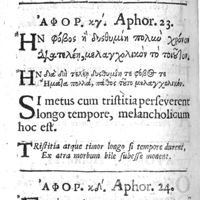 ἈΦΟΡ. κγ'. Aphor. 23.
ἪΝ φόβος ἢ δυσθυμίη πολὺν χρόνον
διατελέῃ, μελαγχολικὸν τὸ τοιοῦτον.
Ἢν διὰ δὴ τελέῃ δυσθυμίη τε φόβος τε
Ἤματα πολλὰ, πάθος τοῦτο μελαγχολικόν.
SI metus cum tristitia perseverent
longo tempore, melancholicum
hoc est.
TRistitia atque timor longo si tempore durent,
Ex atra morbum bile subesse monent.
ἈΦΟΡ. κδ'. Aphor. 24.